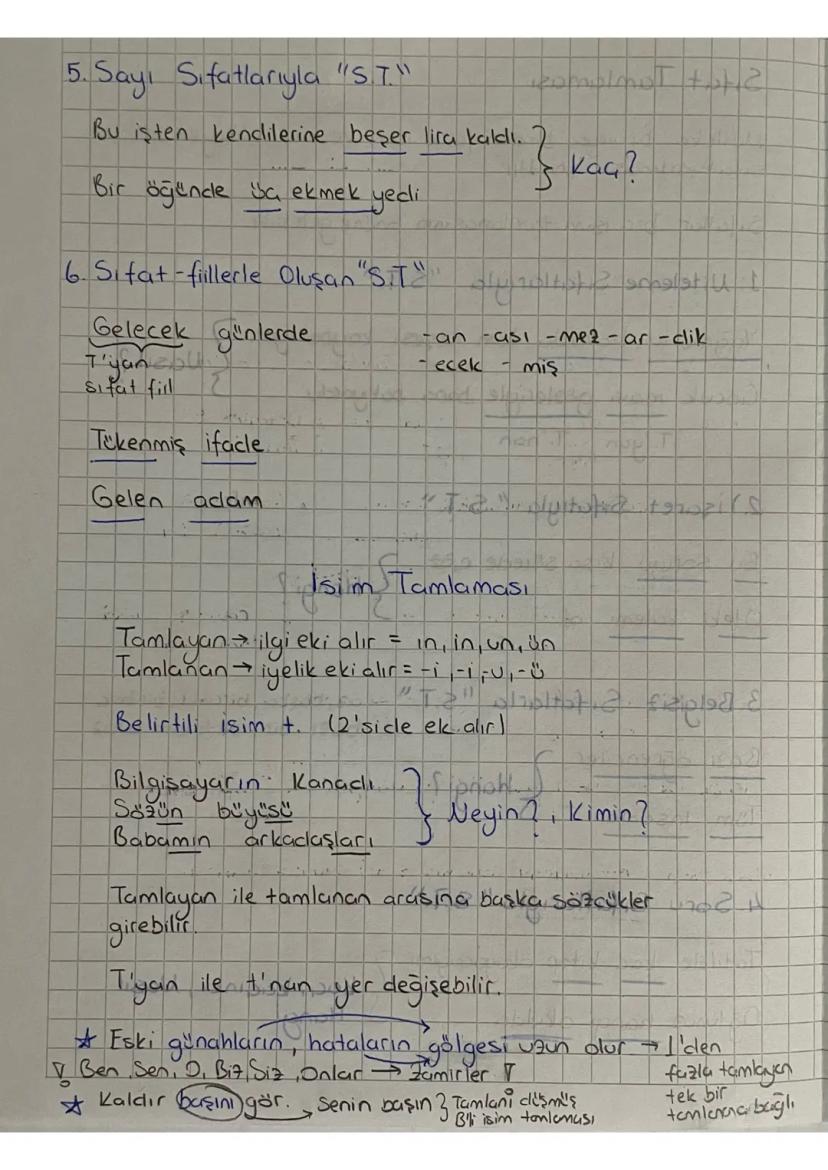 5. Sayı Sıfatlarıyla "S.T."
Bu işten kendilerine beşer lira kaldı.
Bir öğünde üç ekmek yedi
} Kaç?
6. Sıfat-fiillerle Oluşan "S.T"
Gelecek günlerde
T'yan
sıfat fiil
-an -ası -mez -ar -dik
-ecek - miş
Tükenmiş ifade
Gelen adam
İsim Tamlaması
Tamlayan → ilgi eki alır = ın, in, un, ün
Tamlanan → iyelik eki alır = -i, -i, -u, -ü
Belirtili isim t. (2'side ek alır)
Bilgisayarın Kanadı
Sözün büyüsü
Babamın arkadaşları
} Neyin?, Kimin?
Tamlayan ile tamlanan arasına başka sözcükler
girebilir.
T'yan ile t'nan yer değişebilir.
★ Eski günahların, hataların gölgesi uzun olur → 1'den
fazla tamlayan
tek bir
tamlanana bağlı
! Ben, Sen, O, Biz, Siz, Onlar → Zamirler !
★ Kaldır başını gör. → senin başın } Tamlanı düşmüş
B'li isim tamlaması